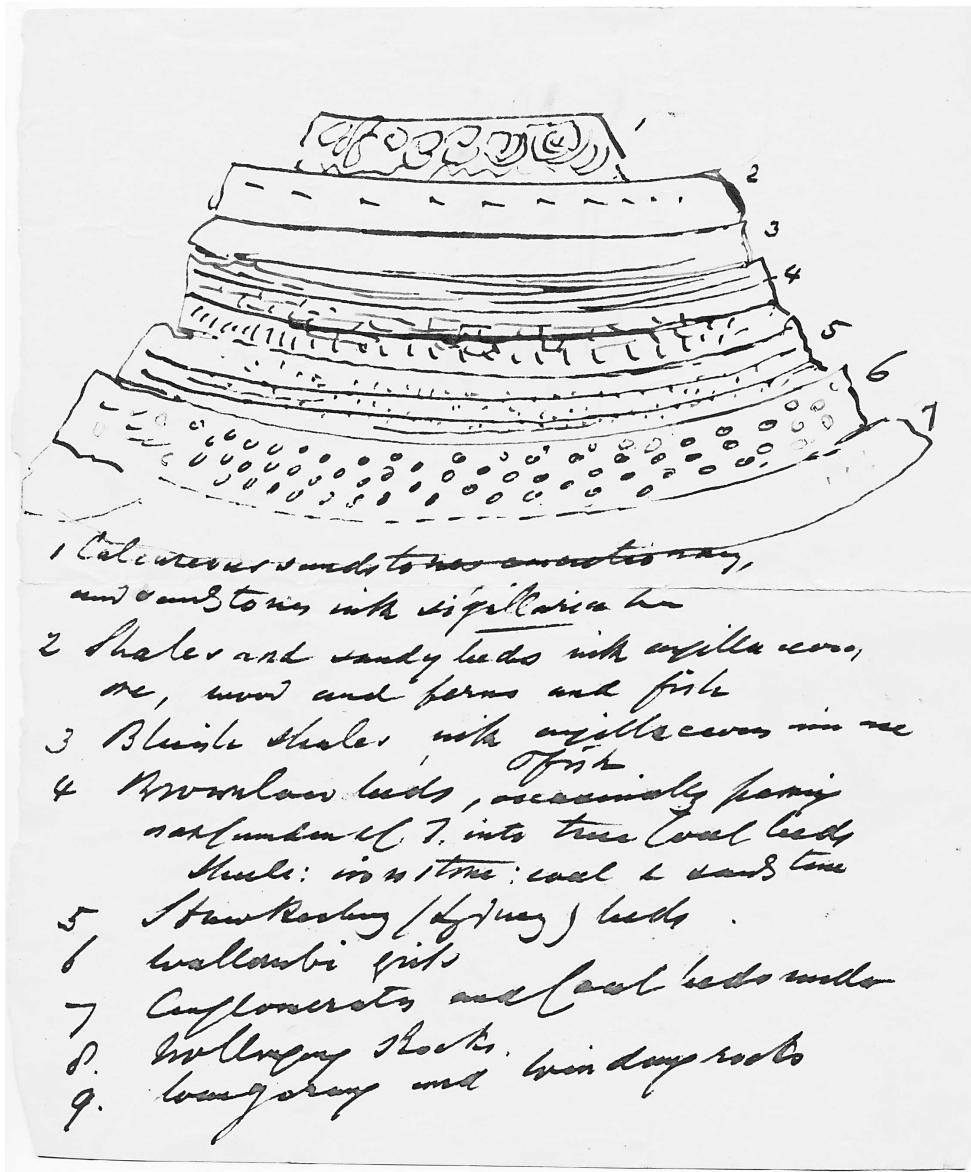 1
2
3
4
5
6
7
1 Calcareous sandstones concretionary,
and sandstones with sigillaria &c
2 Shales and sandy beds with argillaceous
ore, wood and ferns and fish
3 Bluish shales with argillaceous iron ore
& fish
4 beds, occasionally passing
into true Coal beds
Shale: ironstone: coal & sandstone
5 Hawkesbury (Sydney) beds.
6 Wallambi grits
7 Conglomerates and Coal beds under
8. Wollongong Rocks.
9. and rocks